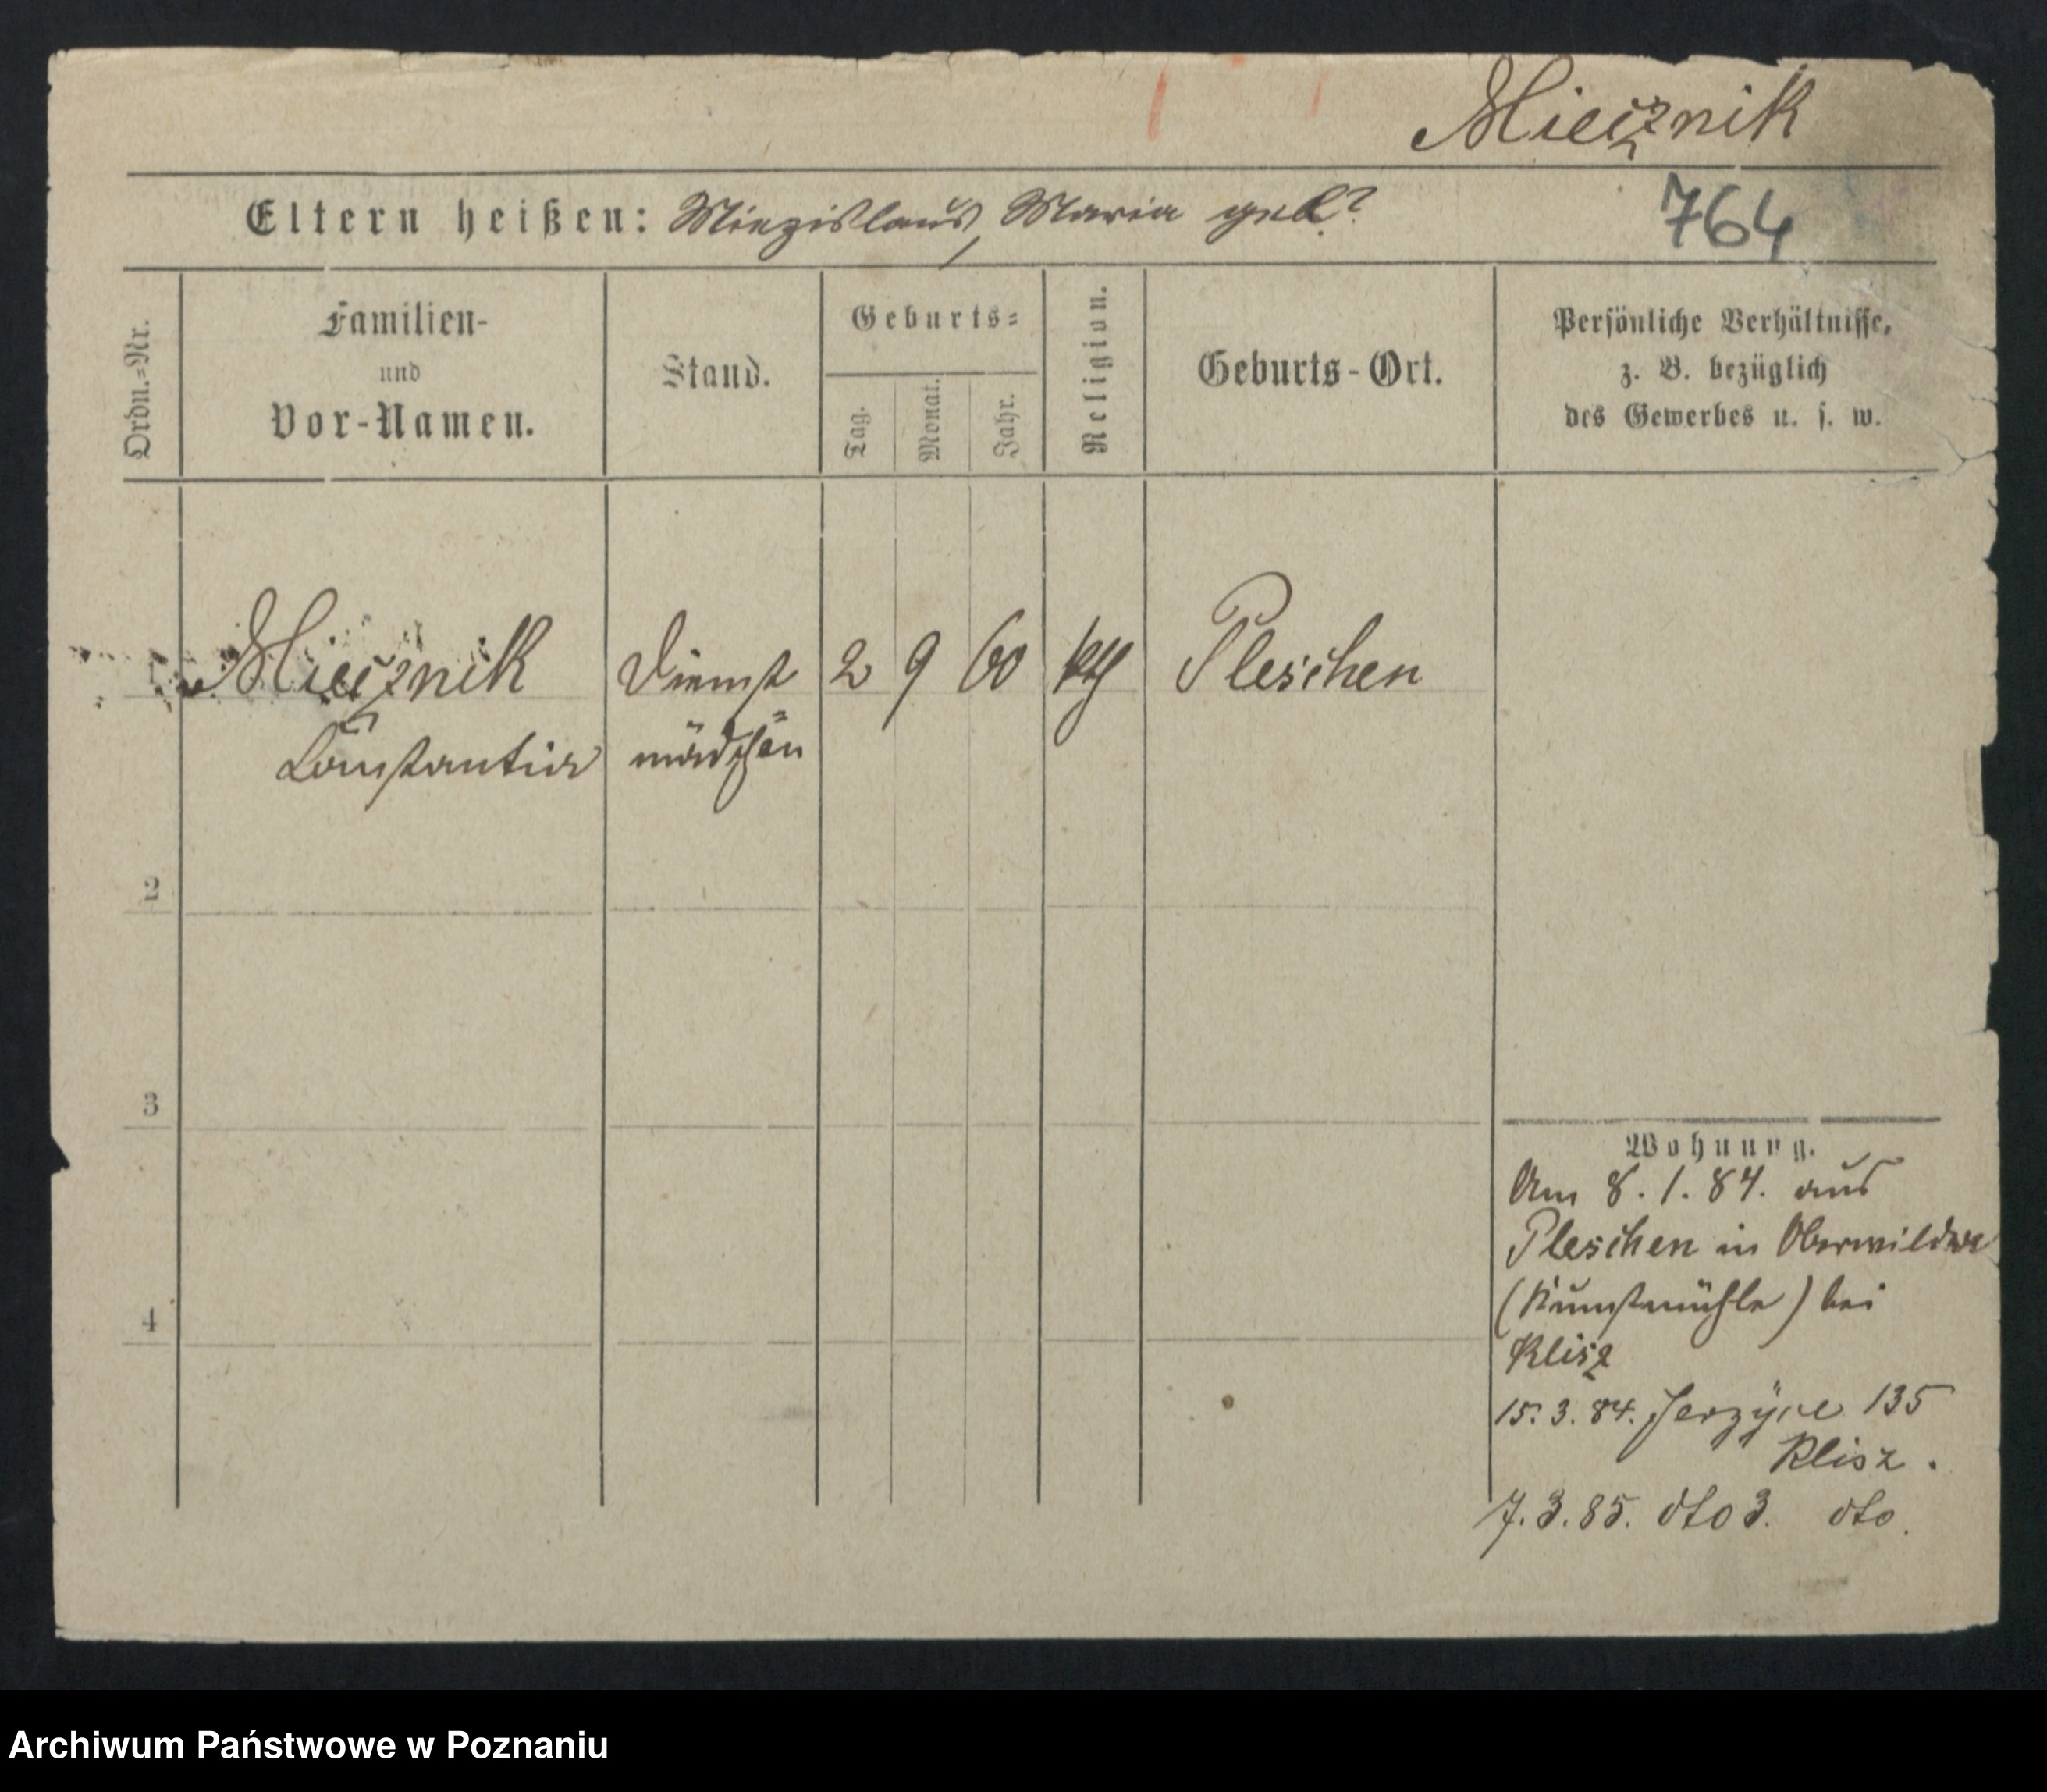 Miecznik
764
Eltern heißen: Miezislaus, Maria geb.?
Ordn.=Nr.
Familien-
und
Vor-Namen.
Stand.
Geburts=
Tag.
Monat.
Jahr.
Religion.
Geburts-Ort.
Persönliche Verhältnisse,
z. B. bezüglich
des Gewerbes u. s. w.
Miecznik
Constantia
Dienst
mädchen
2 9 60 kth
Pleschen
2
3
4
Wohnung.
Am 8.1.84. aus
Pleschen in Oberwilda
(Kunstmühle) bei
Klisz
15.3.84. Jerzyce 135
Klisz.
7.3.85. dto 3. dto.
Archiwum Państwowe w Poznaniu